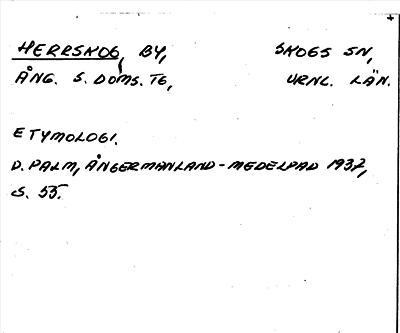 HERRSKOG, BY, SKOGS SN,
ÅNG. S. DOMS. TG, URNL. LÄN.
ETYMOLOGI.
D. PALM, ÅNGERMANLAND-MEDELPAD 1937,
S. 55.